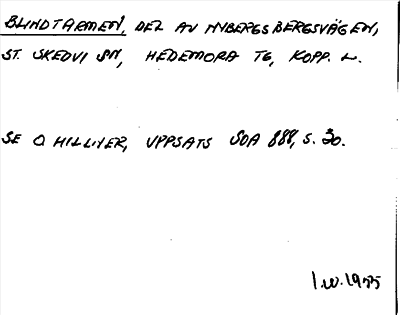 BLINDTARMEN, DEL AV NYBERGSBERGSVÄGEN,
ST. SKEDVI SN, HEDEMORA TG, KOPP. L.
SE O HILLNER, UPPSATS SOA 888, S. 30.
1955